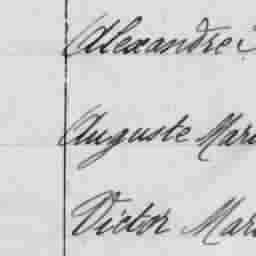 Alexandre
Auguste Mari
Victor Mari